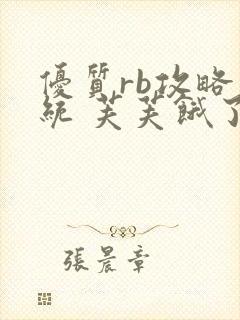 優質rb攻略
統 芙芙餓了
張晨章